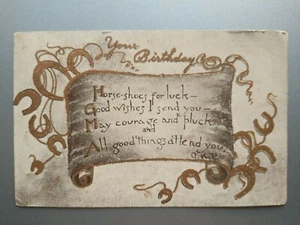 Your
Birthday
Horse-shoes for luck —
Good wishes I send you —
May courage and pluck —
and
All good things attend you